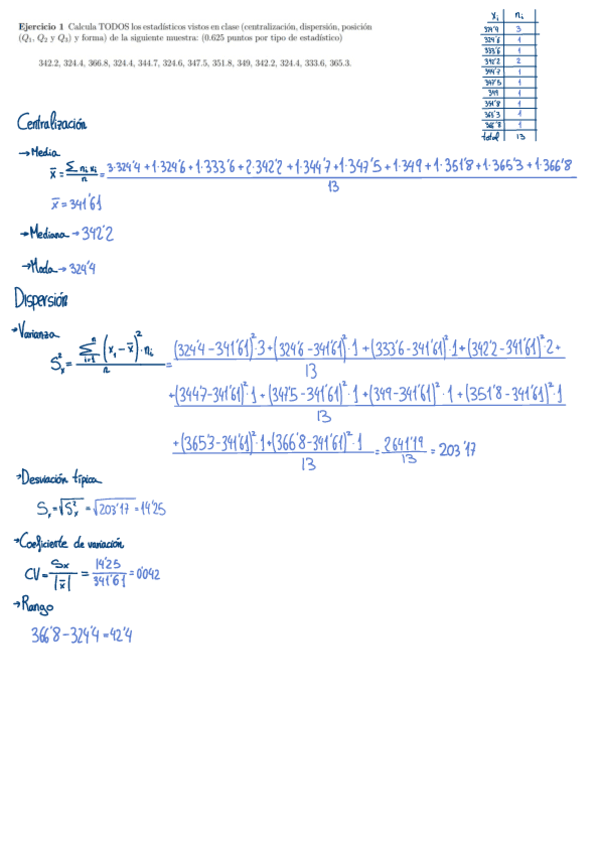 Ejercicio 1 Calcula TODOS los estadísticos vistos en clase (centralización, dispersión, posición
(Q₁, Q₂ y Q₃) y forma) de la siguiente muestra: (0.625 puntos por tipo de estadístico)
342.2, 324.4, 366.8, 324.4, 344.7, 324.6, 347.5, 351.8, 349, 342.2, 324.4, 333.6, 365.3.
xᵢ nᵢ
324'4 3
324'6 1
333'6 1
342'2 2
344'7 1
347'5 1
349 1
351'8 1
365'3 1
366'8 1
total 13
Centralización
→Media
x̄ = Σ nᵢ xᵢ / n = 3·324'4 + 1·324'6 + 1·333'6 + 2·342'2 + 1·344'7 + 1·347'5 + 1·349 + 1·351'8 + 1·365'3 + 1·366'8 / 13
x̄ = 341'61
→Mediana → 342'2
→Moda → 324'4
Dispersión
→Varianza
S²ₓ = Σⁿᵢ₌₁ (xᵢ - x̄)² · nᵢ / n = (324'4 - 341'61)²·3 + (324'6 - 341'61)²·1 + (333'6 - 341'61)²·1 + (342'2 - 341'61)²·2 + / 13
+ (344'7 - 341'61)²·1 + (347'5 - 341'61)²·1 + (349 - 341'61)²·1 + (351'8 - 341'61)²·1 / 13
+ (365'3 - 341'61)²·1 + (366'8 - 341'61)²·1 / 13 = 2641'19 / 13 = 203'17
→Desviación típica
Sₓ = √S²ₓ = √203'17 = 14'25
→Coeficiente de variación
CV = Sx / |x̄| = 14'25 / 341'61 = 0'042
→Rango
366'8 - 324'4 = 42'4